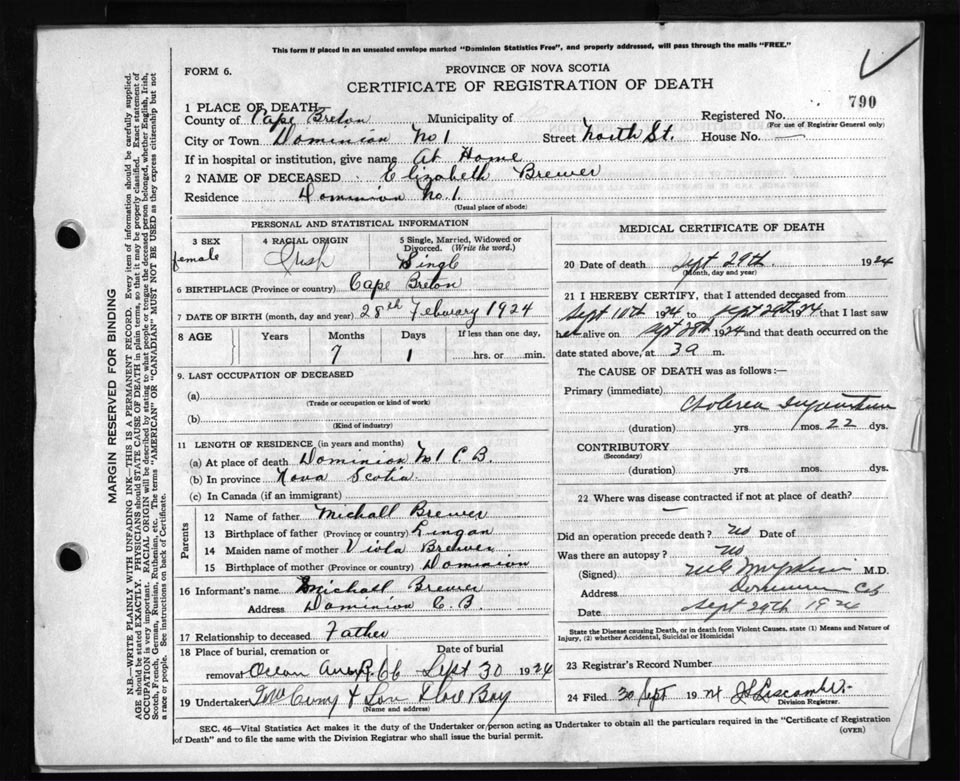 This form if placed in an unsealed envelope marked "Dominion Statistics Free", and properly addressed, will pass through the mails "FREE."
FORM 6.
PROVINCE OF NOVA SCOTIA
CERTIFICATE OF REGISTRATION OF DEATH
790
1 PLACE OF DEATH
County of Cape Breton Municipality of Registered No.
(For use of Registrar General only)
City or Town Dominion No 1 Street North St. House No. —
If in hospital or institution, give name At Home
2 NAME OF DECEASED Elizabeth Brewer
Residence Dominion No. 1.
(Usual place of abode)
PERSONAL AND STATISTICAL INFORMATION
3 SEX 4 RACIAL ORIGIN 5 Single, Married, Widowed or Divorced. (Write the word.)
female Irish Single
6 BIRTHPLACE (Province or country) Cape Breton
7 DATE OF BIRTH (month, day and year) 28th Febuary 1924
8 AGE Years Months Days If less than one day,
7 1 hrs. or min.
9. LAST OCCUPATION OF DECEASED
(a)
(Trade or occupation or kind of work)
(b)
(Kind of industry)
11 LENGTH OF RESIDENCE (in years and months)
(a) At place of death Dominion No 1 C.B.
(b) In province Nova Scotia
(c) In Canada (if an immigrant)
Parents
12 Name of father Michall Brewer
13 Birthplace of father (Province or country) Lingan
14 Maiden name of mother Viola Brewer
15 Birthplace of mother (Province or country) Dominion
16 Informant's name Michall Brewer
Address Dominion C.B.
17 Relationship to deceased Father
18 Place of burial, cremation or Date of burial
removal Ocean Sept 30 1924
19 Undertaker & Son Bay
(Name and address)
MEDICAL CERTIFICATE OF DEATH
20 Date of death Sept 29th. 1924
(Month, day and year)
21 I HEREBY CERTIFY, that I attended deceased from
Sept 10th 1924 to Sept 29th 1924 that I last saw
her alive on Sept 28th 1924 and that death occurred on
date stated above, at 3 a m.
The CAUSE OF DEATH was as follows:—
Primary (immediate)
Cholera
(duration) yrs. mos. 22 dys.
CONTRIBUTORY
(Secondary)
(duration) yrs. mos. dys.
22 Where was disease contracted if not at place of death?
—
Did an operation precede death? No Date of
Was there an autopsy? No
(Signed) M.D.
Address Dominion C.B.
Date Sept 29th 1924
State the Disease causing Death, or in death from Violent Causes, state (1) Means and Nature of
Injury, (2) whether Accidental, Suicidal or Homicidal
23 Registrar's Record Number
24 Filed 30 Sept 1924
Division Registrar.
SEC. 46—Vital Statistics Act makes it the duty of the Undertaker or person acting as Undertaker to obtain all the particulars required in the "Certificate of Registration
of Death" and to file the same with the Division Registrar who shall issue the burial permit.
(OVER)
MARGIN RESERVED FOR BINDING
N.B.—WRITE PLAINLY WITH UNFADING INK—THIS IS A PERMANENT RECORD. Every item of information should be carefully supplied.
AGE should be stated EXACTLY. PHYSICIANS should STATE CAUSE OF DEATH in plain terms, so that it may be properly classified. Exact statement of
OCCUPATION is very important. RACIAL ORIGIN will be described by stating to what people or tongue the deceased person belonged, whether English, Irish,
Scotch, French, German, Russian, Ruthenian, etc. The terms "AMERICAN" OR "CANADIAN" MUST NOT BE USED as they express citizenship but not
a race or people. See instructions on back of Certificate.